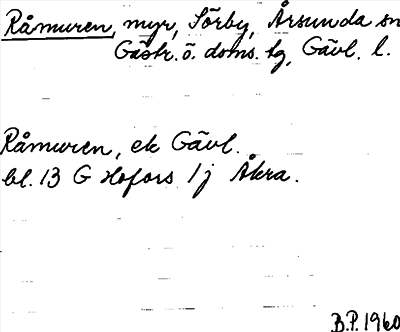 Råmuren, myr, Sörby, Årsunda sn
Gästr. ö. doms. tg, Gävl. l.
Råmuren, ek Gävl.
bl. 13 G Hofors 1j Åkra.
B.P. 1960